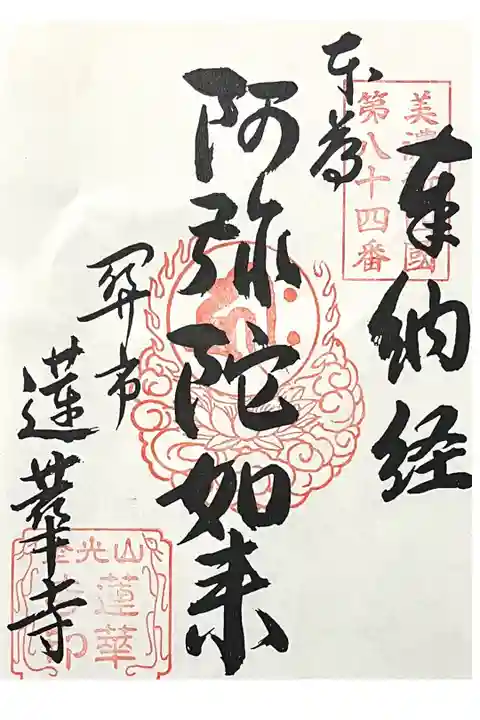 奉納経
美濃四國
第八十四番
本尊
阿弥陀如来
関市
蓮華寺
山光
蓮華
寺印